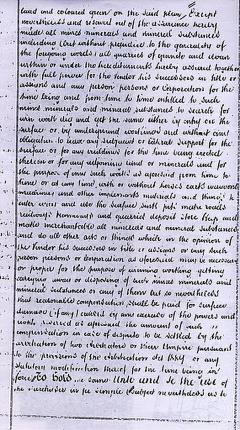 land and coloured green on the said plan. Except
nevertheless and reserved out of the assurance hereby
made all mines minerals and mineral substances
including (but without prejudice to the generality of
the foregoing words) all quarries of granite and stone
within or under the hereditaments hereby assured together
with full power for the Vendor his successors in title or
assigns and any person persons or Corporation for the
time being and from time to time entitled to such
mines minerals and mineral substances to search for
win work dig and get the same either by entry on the
surface or by underground workings and without any
obligation to leave any subjacent or lateral support for the
surface or for any buildings for the time being erected
thereon or for any adjoining land or minerals and for
the purpose of any such works as aforesaid from time to
time or at any time with or without horses carts waggons
machinery and other implements materials and things to
enter into and upon the surface sink pits make roads
railways tramways and quarries deposit store heap and
make merchantable all minerals and mineral substances
and do all other acts or things which in the opinion of
the Vendor his successors in title or assigns or any such
person persons or corporation as aforesaid may be necessary
or proper for the purpose of winning working getting
carrying away or disposing of such mines minerals and
mineral substances or any of them but so nevertheless
that reasonable compensation shall be paid for surface
damage (if any) caused by any exercise of the powers and
rights reserved as aforesaid the amount of such
compensation in case of dispute to be settled by the
arbitration of two Arbitrators or their Umpire pursuant
to the provisions of the Arbitration Act 1889 or any
statutory modification thereof for the time being in
force To Hold the same Unto and to the Use of
the Purchaser in fee simple Subject nevertheless as to